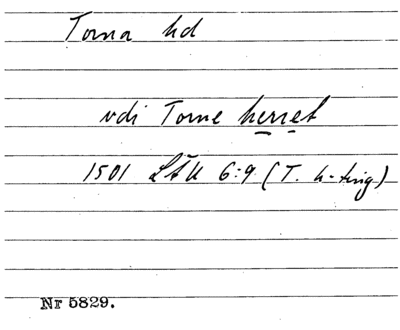 Torna hd
vdi Torne herret
1501 LÄU 6:9 (T. h-ting)
Nr 5829.